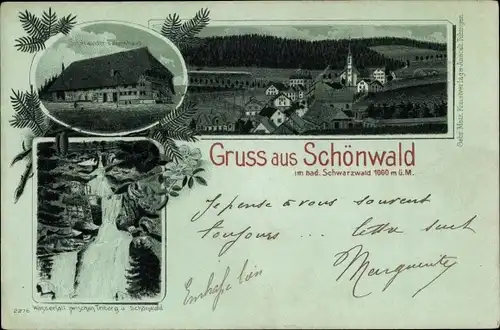 Schönwälder Bauernhaus
Gebr. Metz, Kunstverlags-Anstalt, Tübingen.
Gruss aus Schönwald
im bad. Schwarzwald 1000 m ü. M.
Je pense à vous souvent
toujours ... lettre suit
Marguerite
2276 Wasserfall zwischen Triberg u Schönwald